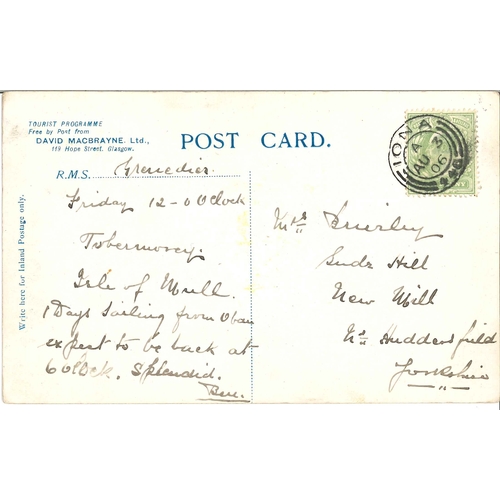 TOURIST PROGRAMME
Free by Post from
DAVID MACBRAYNE, Ltd.,
119 Hope Street, Glasgow.
POST CARD.
Write here for Inland Postage only.
R.M.S. Grenedier
Friday 12-0 OClock
Tobermorey.
Isle of Mull.
1 Days Sailing from Oban
expect to be back at
6 OClock. Splendid.
Ben.
IONA
A
AU 3
06
Mrs Brierley
Hill
New Mill
Nr Huddersfield
Yorkshire